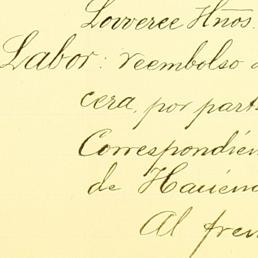 Lovveree Hnos.
Labor: reembolso
cera, por part
Correspondien
de Hacien
Al fren